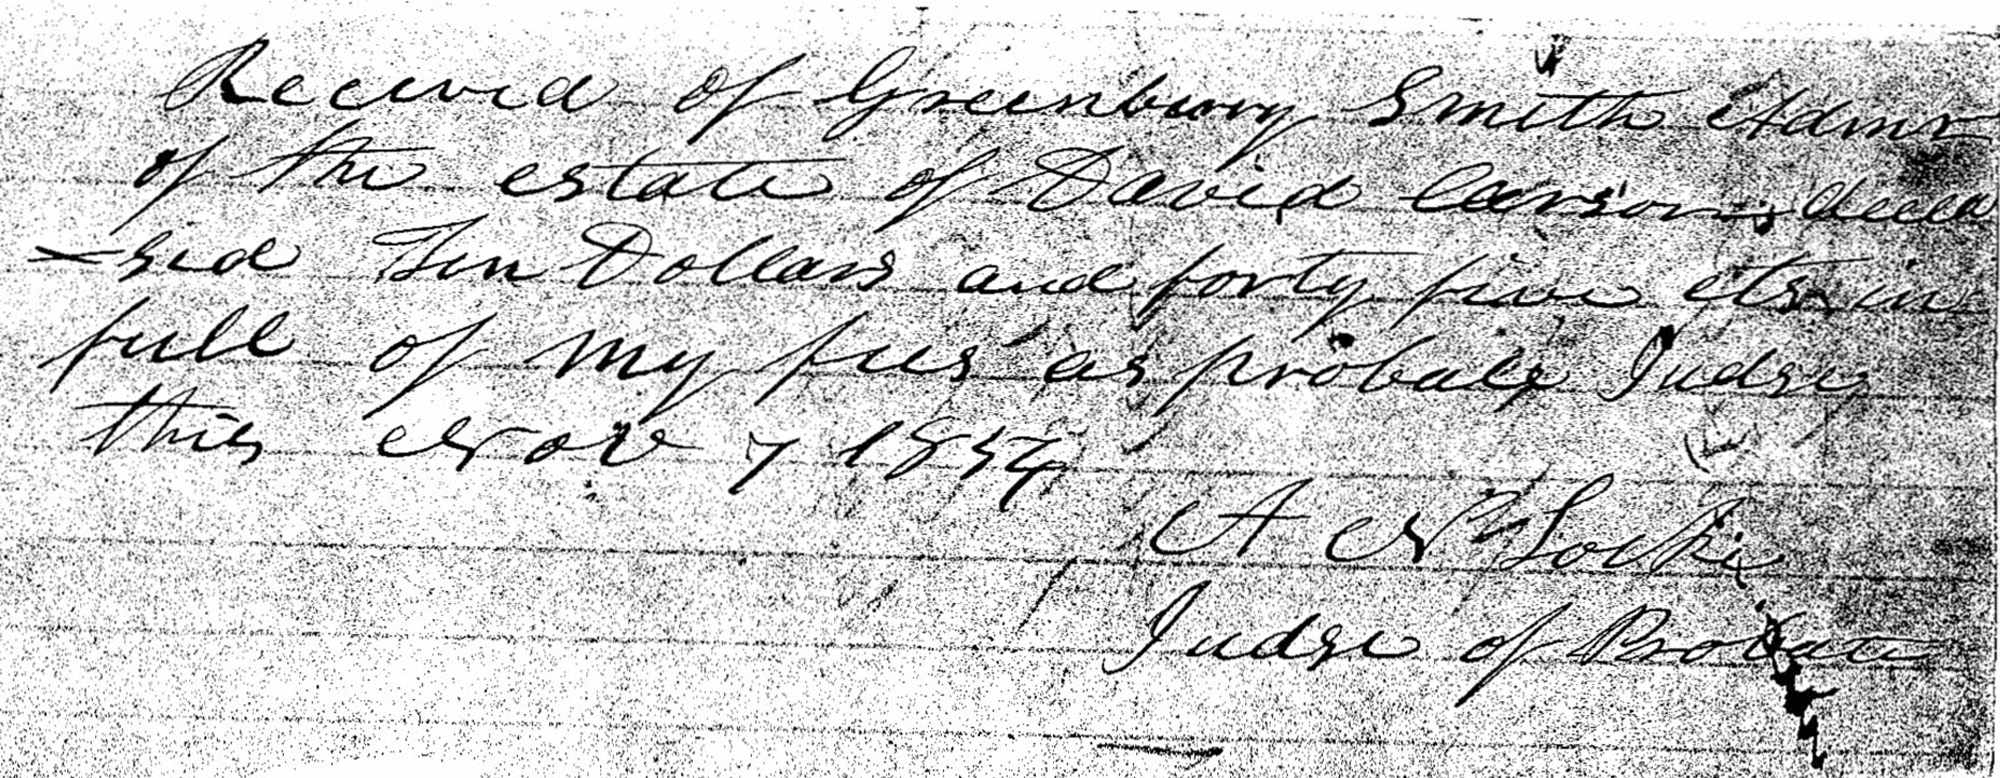 Received of Greenbury Smith Admr
of the estate of David Carson, decea
=sed Ten Dollars and forty five cts in
full of my fees as probate Judge
this Nov 7 1854
A N Locke
Judge of Probate